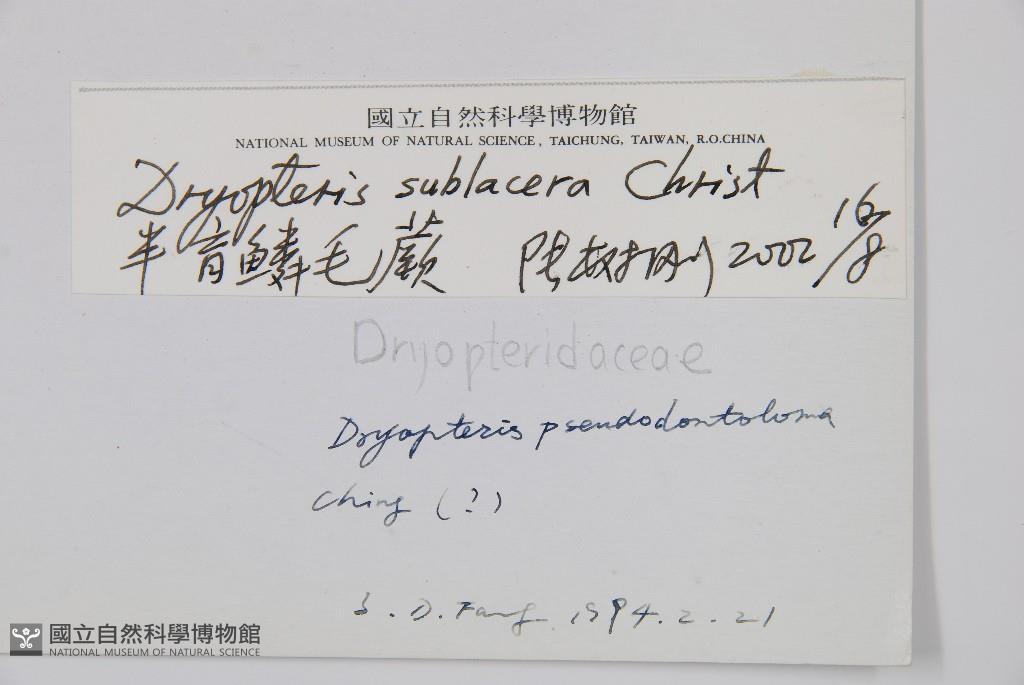 國立自然科學博物館
NATIONAL MUSEUM OF NATURAL SCIENCE, TAICHUNG, TAIWAN, R.O.CHINA
Dryopteris sublacera Christ
半育鱗毛蕨 2002 16/8
Dryopteridaceae
Dryopteris pseudodontoloma
Ching (?)
S. D. Fang 1994. 2. 21
國立自然科學博物館
NATIONAL MUSEUM OF NATURAL SCIENCE